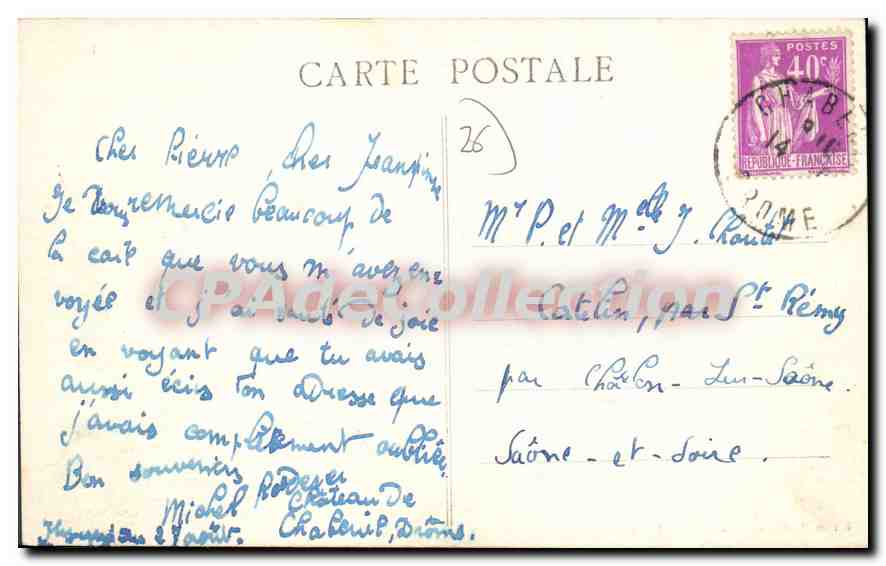 CARTE POSTALE
26
POSTES
40c
REPUBLIQUE-FRANÇAISE
CHABE
14
DROME
Cher Pierre, cher
Je vous remercie beaucoup de
la carte que vous m'avez en
voyée et j'ai de joie
en voyant que tu avais
aussi écris ton adresse que
j'avais complètement oubliée.
Bon souvenirs
Michel
Château de
Chabeuil, Drôme.
27 août.
Mr P. et Melle J.
Catelin, par St Rémy
par Châlon-sur-Saône.
Saône-et-Loire.
CPAdeCollection.com